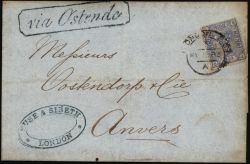 via Ostende
Messieurs
Oostendorp & Cie
Anvers
& SIBETH
LONDON